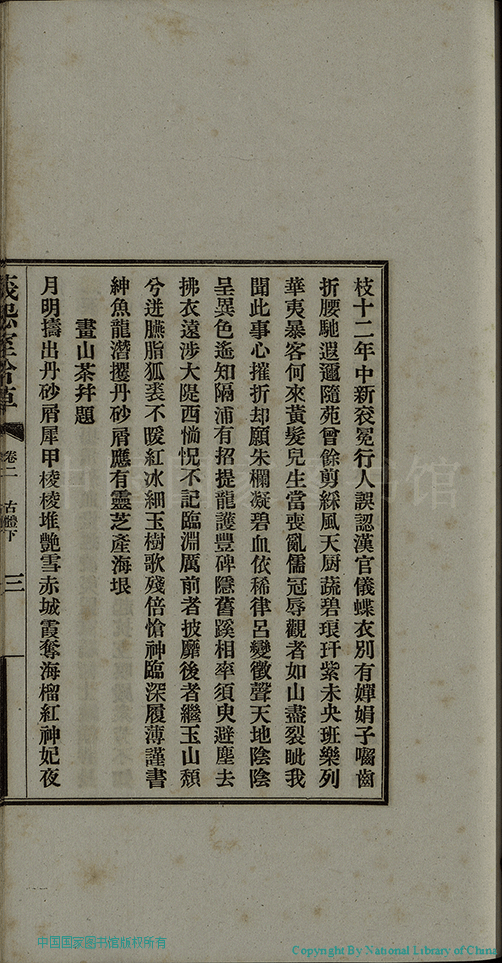 枝十二年中新袞冕行人誤認漢官儀蝶衣別有嬋娟子囓齒
折腰馳遐邇隨苑曾餘剪綵風天厨蔬碧琅玕紫未央班樂列
華夷暴客何來黃髮兒生當喪亂儒冠辱觀者如山盡裂眦我
聞此事心摧折却願朱欄凝碧血依稀律呂變徵聲天地陰陰
呈異色遙知隔浦有招提龍護豐碑隱舊蹊相率須臾避塵去
拂衣遠涉大隄西惝怳不記臨淵厲前者披靡後者繼玉山頹
兮迸臙脂狐裘不暖紅冰細玉樹歌殘倍愴神臨深履薄謹書
紳魚龍潛攫丹砂屑應有靈芝產海垠
畫山茶幷題
月明擣出丹砂屑犀甲棱棱堆艷雪赤城霞奪海榴紅神妃夜
卷二 古體下
三
中国国家图书馆版权所有
Copyright By National Library of China